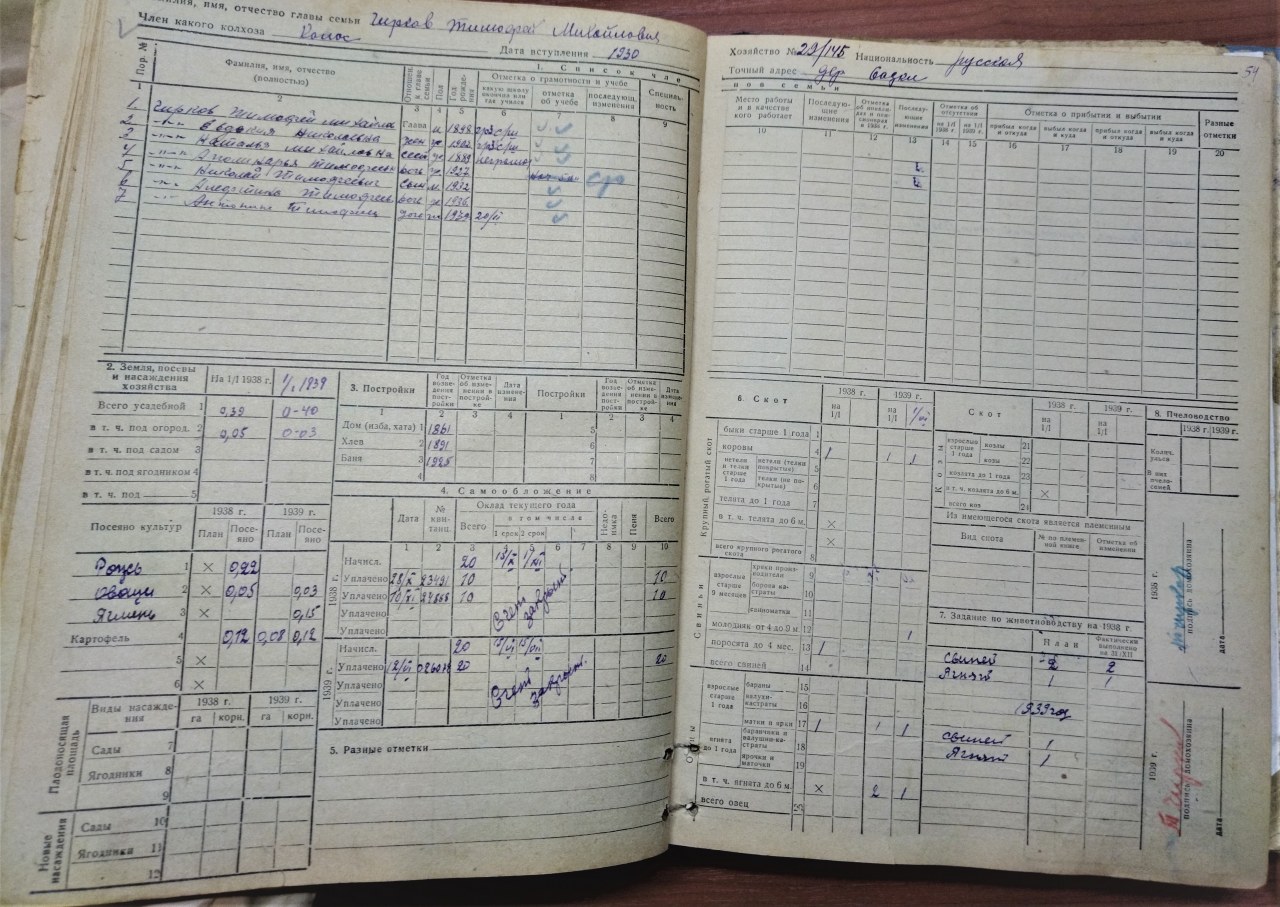 Фамилия, имя, отчество главы семьи Чирков Тимофей Михайлович
Член какого колхоза Колос Дата вступления 1930
1. Список чле
Пор. №
Фамилия, имя, отчество (полностью)
Отношен. к главе семьи
Пол
Год рожде-
Отметка о грамотности и учебе
какую школу окончил или где учился
отметка об учебе
последующ. изменения
Специаль-ность
1 2 3 4 5 6 7 8 9
1 Чирков Тимофей Михайло Глава м 1898
2 -"- Евдокия Николаевна жен ж 1902
3 -"- Наталья Михайловна сест ж 1889 неграмот
4 -"- Тимофеевн дочь ж 1927
5 -"- Николай Тимофеевич сын м 1932 ср
6 -"- Тимофеев дочь ж 1936
7 Антонина Тимофеев доч ж 1939 20/VI
2. Земля, посевы и насаждения хозяйства
На 1/I 1938 г. 1/I 1939
Всего усадебной 1 0,39 0-40
в т. ч. под огород. 2 0,05 0-03
в т. ч. под садом 3
в т. ч. под ягодником 4
в т. ч. под 5
Посеяно культур
1938 г. 1939 г.
План Посе-вно План Посе-вно
Рожь 1 × 0,22
Овощи 2 × 0,05 0,03
Ячмень 3 × 0,15
Картофель 4 0,12 0,08 0,12
5 ×
6 ×
Плодоносящая площадь
Виды насажде-ния
1938 г. 1939 г.
га корн. га корн.
Сады 7
Ягодники 8
9
Новые насаждения
Сады 10
Ягодники 11
12
3. Постройки
Год возве-дения пост-ройки
Отметка об изме-нении в построй-ке
Дата измене-ния
Постройки
Год возве-дения пост-ройки
Отметка об изме-нении в построй-ке
Дата измене-ния
1 2 3 4 1 2 3 4
Дом (изба, хата) 1 1861 5
Хлев 2 1891 6
Баня 3 1925 7
4 8
4. Самообложение
Дата
№ кви-танц.
Оклад текущего года
Всего
в том числе
1 срок 2 срок
Недо-имка
Пени
Всего
1 2 3 4 5 6 7 8 9 10
1938 г.
Начисл. 20 15/X 1/XII
Уплачено 28/X 23491 10 10
Уплачено 10/XI 10 10
Уплачено
Уплачено
Счет закрыт.
1939 г.
Начисл. 20
Уплачено 12/VI 20 20
Уплачено
Уплачено
Уплачено
Счет закрыт.
5. Разные отметки
Хозяйство № 29/145 Национальность русская 54
Точный адрес дер
нов семьи
Место работы и в качестве кого работает
Последую-щие изменения
Последу-щие изменения
Отметка об отсутствии
на 1/I 1938 г. на 1/I 1939 г.
Отметка о прибытии и выбытии
прибыл когда и откуда
выбыл когда и куда
прибыл когда и откуда
выбыл когда и куда
Разные отметки
10 11 12 13 14 15 16 17 18 19 20
6. Скот
1938 г. 1939 г.
на 1/I на 1/I
Крупный рогатый скот
быки старше 1 года 1
коровы 4 1 1 1
нетели и телки старше 1 года
нетели (телки покрытые) 5
телки (не по-крытые) 6
телята до 1 года 7
в т. ч. телята до 6 м. ×
всего крупного рогатого скота 8
Свиньи
взрослые старше 9 месяцев
хряки произ-водители 9
борова ка-страты 10
свиноматки 11
молодняк от 4 до 9 м. 12 1
поросята до 4 мес. 13 1
всего свиней 14
Овцы
взрослые старше 1 года
бараны 15
валухи-кастраты 16
матки и ярки 17 1 1 1
ягнята до 1 года
баранчики и валушки-ка-страты 18
ярочки и маточки 19
в т. ч. ягнята до 6 м. × 2 1
всего овец 20
Скот
1938 г. 1939 г.
на 1/I на 1/I
Козы
взрослые старше 1 года
козлы 21
козы 22
козлята до 1 года 23
в т. ч. козлята до 6 м. ×
всего коз 24
Из имеющегося скота является племенным
Вид скота
№ по племен-ной книге
Отметка об изменении
7. Задание по животноводству на 1938 г.
План
Фактически выполнено на 31/XII
свиней 2 2
Ягнят 1 1
1939 год
свиней 1
Ягнят 1
8. Пчеловодство
1938 г. 1939 г.
Колич. ульев
В них пчело-семей
1938 г.
подпись домохозяина
дата
1939 г.
подпись домохозяина
дата